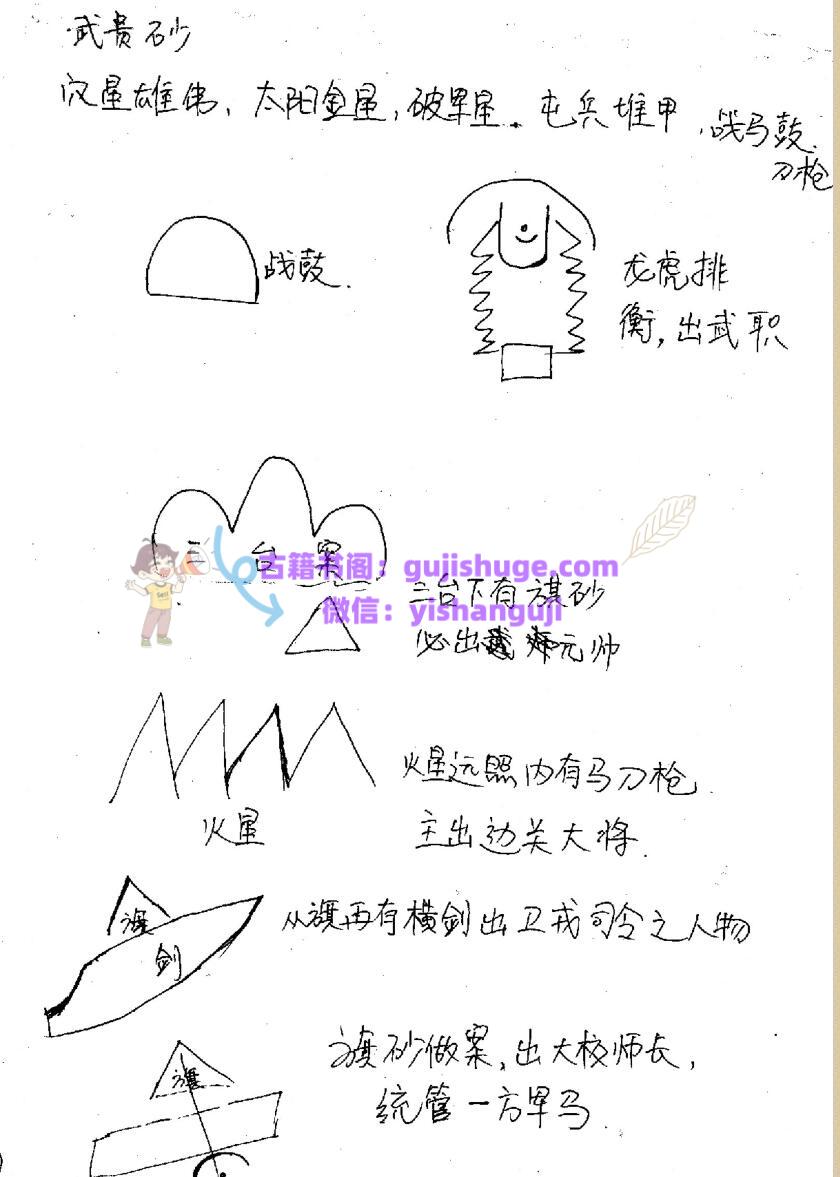 武贵砂
穴星雄伟，太阳金星，破军星．屯兵堆甲，战马鼓．
刀枪
战鼓．
龙虎排
衙，出武职
三台案
古籍书阁：gujishuge.com
微信：yishanguji
三台下有旗砂
必出 元帅
火星远照内有马刀枪．
火星
主出边关大将．
旗
剑
从旗再有横剑出卫戎司令之人物
旗砂做案，出大校师长，
旗
统管一方军马．